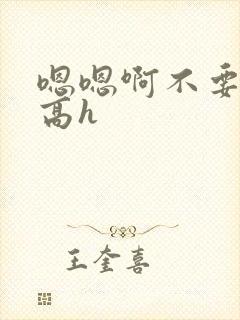 嗯嗯啊不要
高h
王奎喜